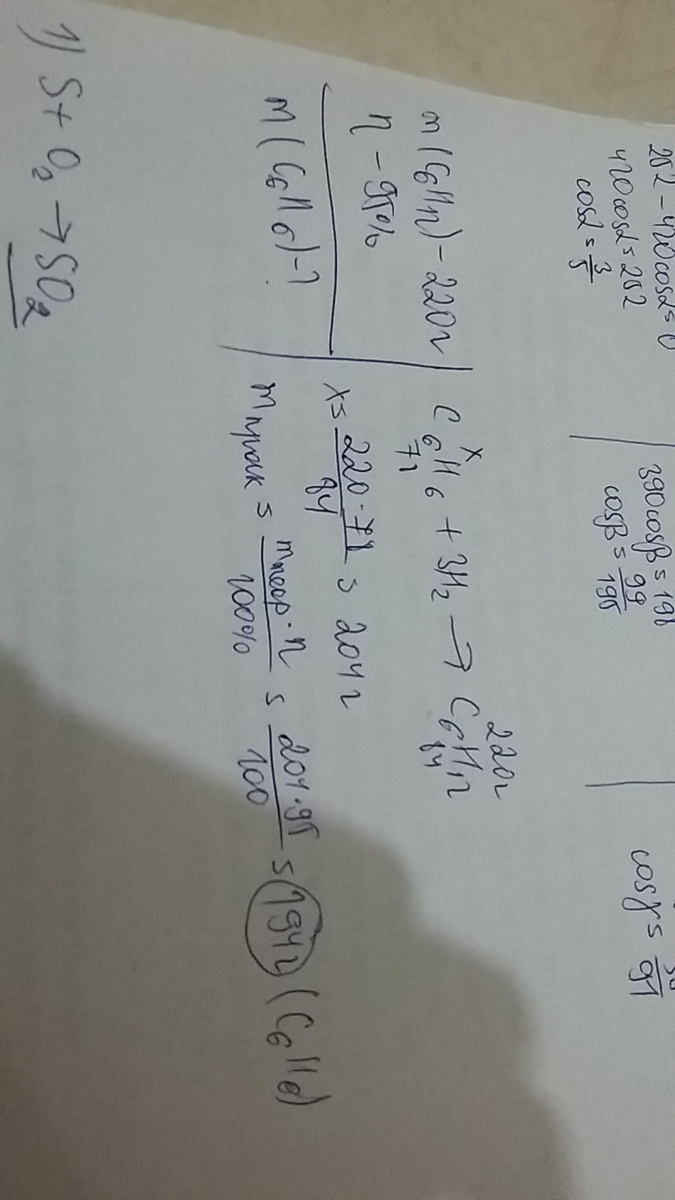 252 - 420cosα = 0
420cosα = 252
cosα = 3/5
390cosβ = 198
cosβ = 99/195
m(C6H12) - 220г
η - 95%
m(C6H6) - ?
x 220г
C6H6 + 3H2 → C6H12
84
x = 220·78/84 = 204г
mпрак = mтеор·η/100% = 204·95/100 = 194г (C6H6)
1) S + O2 → SO2